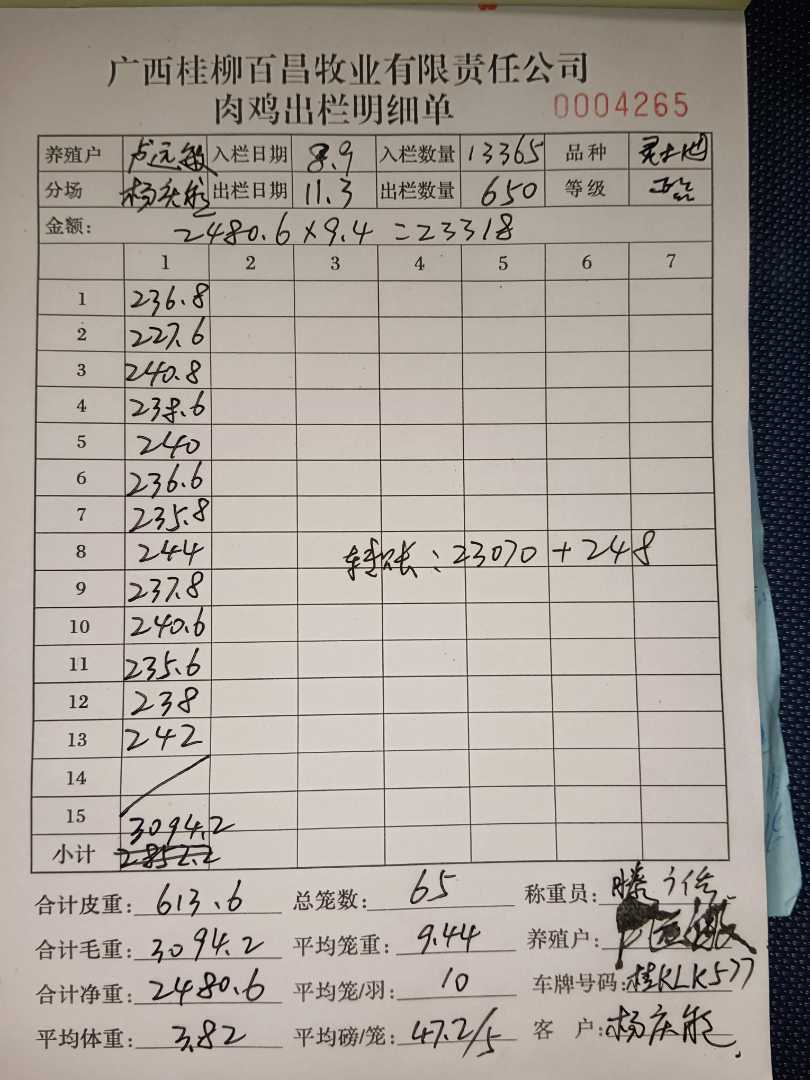 广西桂柳百昌牧业有限责任公司
肉鸡出栏明细单 0004265
养殖户 卢远敏 入栏日期 8.9 入栏数量 13365 品种
分场 杨庆能 出栏日期 11.3 出栏数量 650 等级
金额: 2480.6×9.4=23318
1 2 3 4 5 6 7
1 236.8
2 227.6
3 240.8
4 238.6
5 240
6 236.6
7 235.8
8 244 转账:23070+248
9 237.8
10 240.6
11 235.6
12 238
13 242
14
15 3094.2
小计 2852.2
合计皮重: 613.6 总笼数: 65 称重员:
合计毛重: 3094.2 平均笼重: 9.44 养殖户:
合计净重: 2480.6 平均笼/羽: 10 车牌号码: 桂KLK577
平均体重: 3.82 平均磅/笼: 47.2/5 客户: 杨庆能